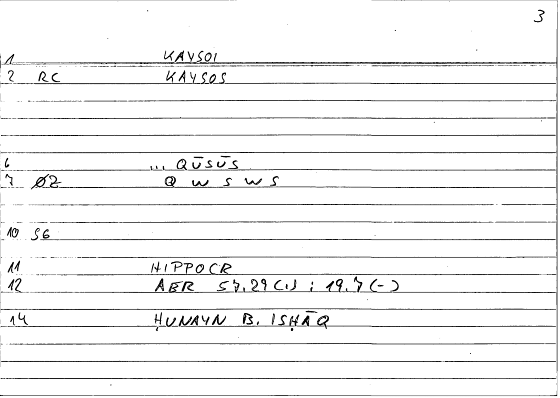 3
1 KAYSOI
2 RC KAYSOS
6 ... QŪSŪS
7 ØZ Q W S W S
10 SG
11 HIPPOCR
12 AER 57,29 (1) ; 19.7 (-)
14 ḤUNAYN B. ISḤĀQ